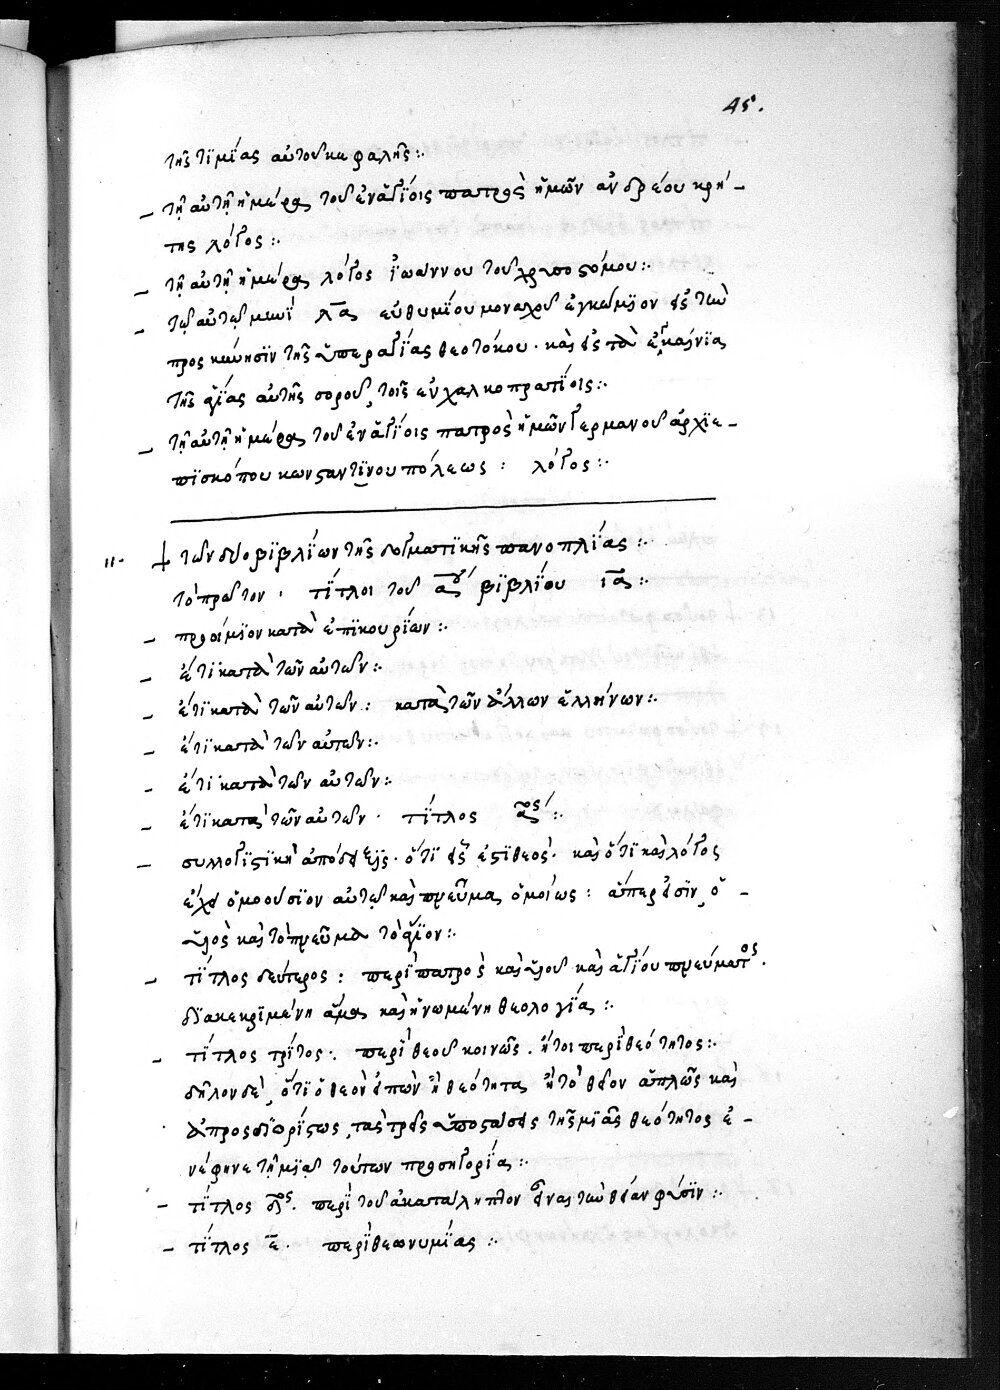 45.
τῆς τϊμΐας αὐτοῦ κεφαλῆς:
– τῆ αὐτῆ ἡμέρα τοῦ ἐν ἁγΐοις πατρὸς ἡμῶν ἀνδρέου κρή–
της λόγος:
– τῆ αὐτῆ ἡμέρα λόγος ἰωάννου τοῦ χρυσοστόμου:
– τῶ αὐτῶ μηνΐ λα εὐθυμΐου μοναχοῦ ἐγκώμϊον εἰς τὴν
προσκύνησϊν τῆς ὑπεραγΐας θεοτόκου. καὶ εἰς τὰ ἐγκαίνϊα
τῆς ἁγίας αὐτῆς σοροῦ, τοῖς ἐν χαλκοπρατΐοις:
– τῆ αὐτῆ ἡμέρα τοῦ ἐν ἁγΐοις πατρὸς ἡμῶν γερμανοῦ ἀρχϊε–
πϊσκόπου κωνσταντϊνουπόλεως: λόγος:
11· τῶν δύο βϊβλΐων τῆς δογματϊκῆς πανοπλΐας:
τὸ πρῶτον· τΐτλοι τοῦ αου βϊβλΐου ια:
– προοίμϊον κατὰ ἐπϊκουρίων:
– ἔτϊ κατὰ τῶν αὐτῶν:
– ἔτϊ κατὰ τῶν αὐτῶν: κατὰ τῶν ἄλλων ἑλλήνων:
– ἔτϊ κατὰ τῶν αὐτῶν:
– ἔτϊ κατὰ τῶν αὐτῶν:
– ἔτϊ κατὰ τῶν αὐτῶν· τΐτλος αος:
– συλλογϊστϊκὴ ἀπόδειξις· ὅτϊ εἷς ἐστϊ θεός· καὶ ὅτϊ καὶ λόγος
ἔχει ὁμοούσϊον αὐτῶ καὶ πνεῦμα ὁμοίως: ἅπερ εἰσϊν, ὁ–
υἱὸς καὶ τὸ πνεῦμα τὸ ἅγϊον:
– τΐτλος δεύτερος: περὶ πατρὸς καὶ υἱοῦ καὶ ἁγΐου πνεύματος.
δϊακεκρϊμένη ἅμα καὶ ἡνωμένη θεολογΐα:
– τΐτλος τρΐτος· περὶ θεοῦ κοινῶς. ἤτοι περὶ θεότητος:
δῆλον δὲ, ὅτϊ ὁ θεὸν εἰπὼν ἢ θεότητα ἢ τὸ θεῖον ἁπλῶς καὶ
ἀπροσδϊορίστως, τὰς τρεῖς ὑποστάσεις τῆς μϊᾶς θεότητος ἐ–
νέφηνε τῆ μϊᾶ τούτων προσηγορΐα:
– τΐτλος δος. περὶ τοῦ ἀκατάληπτον εἶναι τὴν θείαν φύσϊν:
– τΐτλος ε. περὶ θεωνυμΐας: